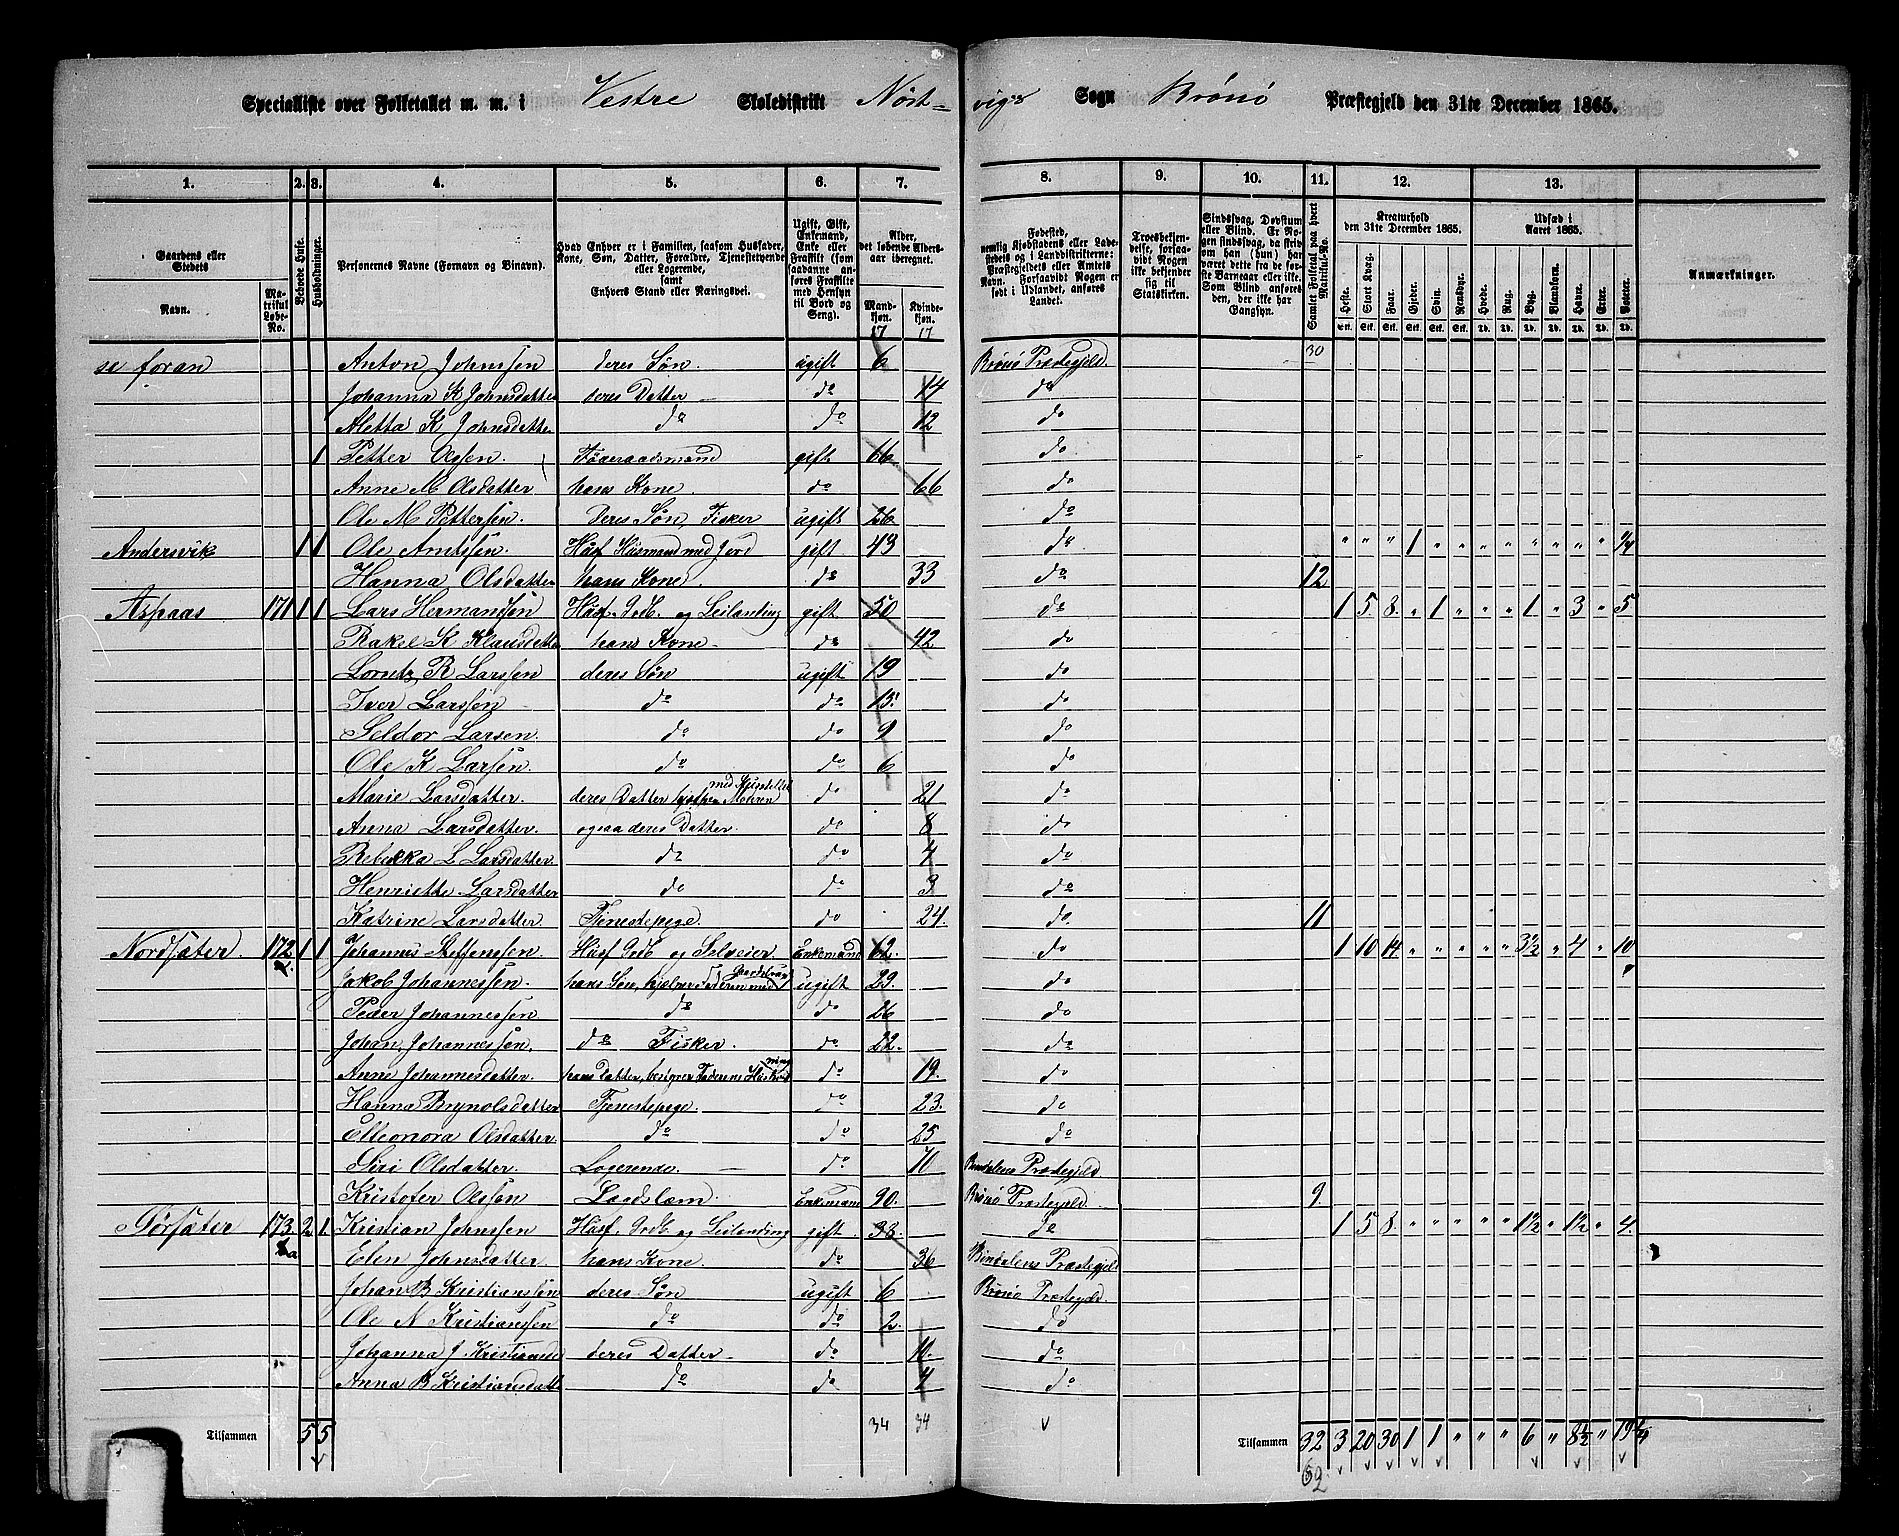 Specialliste over Folketallet m. m. i Vestre Skoledistrikt Nöst- vigs Sogn Brönö Præstegjeld den 31te December 1865.
1. 2. 3. 4. 5. 6. 7. 8. 9. 10. 11. 12. 13.
Gaardens eller Stedets
Navn.
Matrikul Løbe-No.
Beboede Huse.
Husholdninger.
Personernes Navne (Fornavn og Binavn).
Hvad Enhver er i Familien, saasom Husfader, Kone, Søn, Datter, Forældre, Tjenestetyende eller Logerende, samt Enhvers Stand eller Næringsvei.
Ugift, Gift, Enkemand, Enke eller Fraskilt (som saadanne anføres Fraskilte med Hensyn til Bord og Seng).
Alder, det løbende Aldersaar iberegnet.
Mandkjøn. Kvindekjøn.
Fødested, nemlig Kjøbstadens eller Ladestedets og i Landdistrikterne: Præstegjeldets eller Amtets Navn. Forsaavidt Nogen er født i Udlandet, anføres Landet.
Troesbekjendelse, forsaavidt Nogen ikke bekjender sig til Statskirken.
Sindssvag, Døvstum eller Blind. Er Nogen sindssvag, da skrives om han (hun) har været dette fra de første Barneaar eller ikke. Som Blind anføres den, der ikke har Gangsyn.
Samlet Folketal paa hvert Matrikul-No.
Kreaturhold den 31te December 1865.
Heste. Stort Kvæg. Faar. Gjeder. Svin. Rensdyr.
Udsæd i Aaret 1865.
Hvede. Rug. Byg. Blandkorn. Havre. Erter. Poteter.
Anmærkninger.
17 17
se foran Anton Johnssen deres Søn ugift 6 Brönö Præstegjeld. 30
Johanna K Johnsdatter deres Datter do 14 do
Aletta K Johnsdatter do do 12 do
1 Petter Olssen. Föderaadsmand gift 66 do
Anne M Olsdatter hans Kone. do 66 do
Ole M Pettersen. deres Søn, Fisker ugift 26 do
Andersvik 1 1 Ole Arntssen. Husf Husmand med Jord gift 43 do " " " 1 " " " " " " " " 1/4
Hanna Olsdatter hans Kone. do 33 do 12
Aspaas 171 1 1 Lars Hermanssen Husf. Grdb. og Leilending gift 50 do 1 5 8. " 1 " " " 1 " 3 " 5
Rakel K Klausdatter hans Kone do 42 do
Lorntz R Larssen deres Søn ugift 19 do
Iver Larssen do do 15. do
Seldor Larsen. do do 9 do
Ole K Larsen. do do 6 do
Marie Larsdatter. deres Datter hjelper Moderen med Husstellet do 21 do
Anna Larsdatter. ogsaa deres Datter. do 8 do
Rebekka L Larsdatter. do do 4 do
Henriette Larsdatter do do 3 do
Katrine Larsdatter Tjenestepige. do 24. do. 11
Nordsæter. 172 1 1 Johannes Steffenssen. Husf Grdb og Selveier Enkemand 62. do 1 10 14 " " " " " 3 1/2 " 4 " 10
Jakob Johannessen. hans Søn, hjelper Faderen med Gaardsbrug ugift 29. do
Peder Johannessen. do do 26 do
Johan Johannessen. do Fisker. do 22. do
Anne Johannesdatter. hans Datter, bestyrer Faderens Husholdning do 19. do
Hanna Brynolsdatter Tjenestepige. do 23. do
Elleonora Olsdatter. do do 25 do
Siri Olsdatter. Logerende. do 70 Bindalens Præstegjeld
Kristofer Olssen Lægdslæm. Enkemand 90. Brönö Præstegjeld. 9
Sörsæter 173. a 2 1. Kristian Johnssen Husf. Grdb. og Leilending gift 33. do 1 5 8. " " " " " 1 1/2 " 1 1/2 " 4.
Elen Johnsdatter. hans Kone. do 36 Bindalens Præstegjeld
Johan B Kristianssen deres Søn ugift 6 Brönö Præstegjeld.
Ole N Kristianssen do do 2. do
Johanna J. Kristiansd deres Datter do 10. do
Anna B Kristiansdatt do do 4 do
Tilsammen 5 5 34 34 Tilsammen 32 3 20 30 1 1 " " " 6 " 8 1/2 " 19 1/4
62